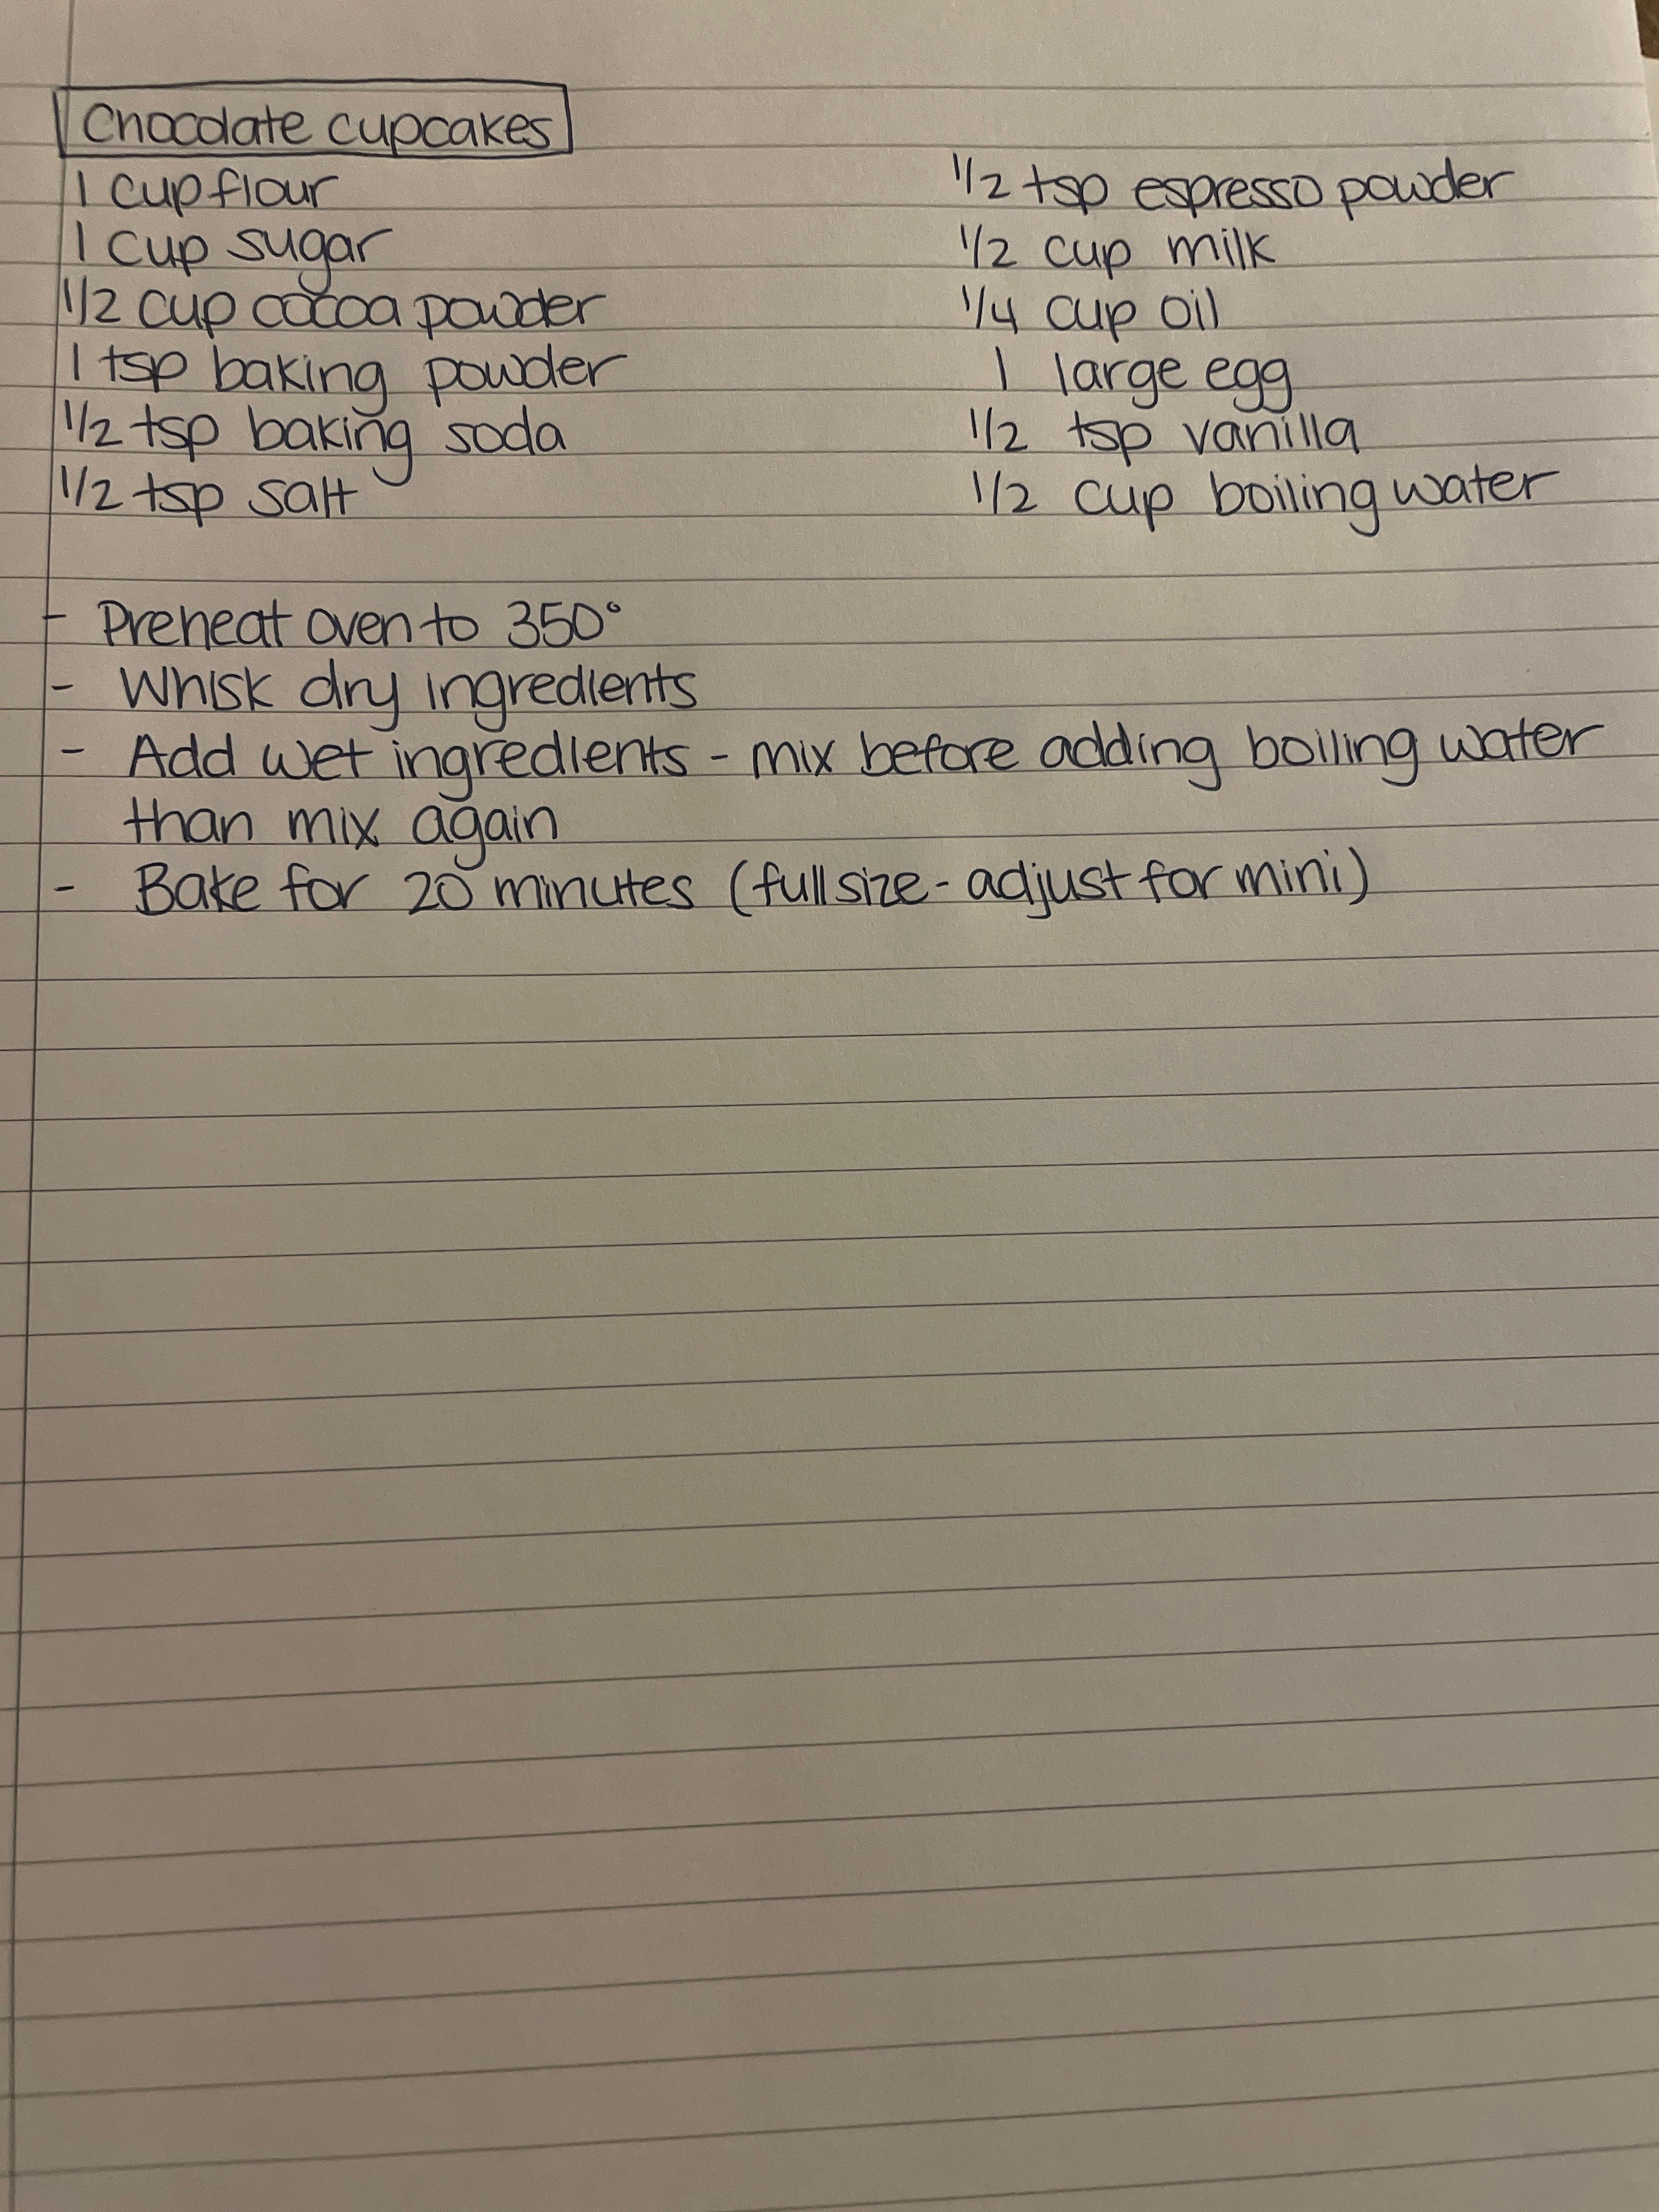 Chocolate cupcakes
1 cup flour
1 cup sugar
1/2 cup cocoa powder
1 tsp baking powder
1/2 tsp baking soda
1/2 tsp salt
1/2 tsp espresso powder
1/2 cup milk
1/4 cup oil
1 large egg
1/2 tsp vanilla
1/2 cup boiling water
- Preheat oven to 350°
- Whisk dry ingredients
- Add wet ingredients - mix before adding boiling water
than mix again
- Bake for 20 minutes (full size - adjust for mini)